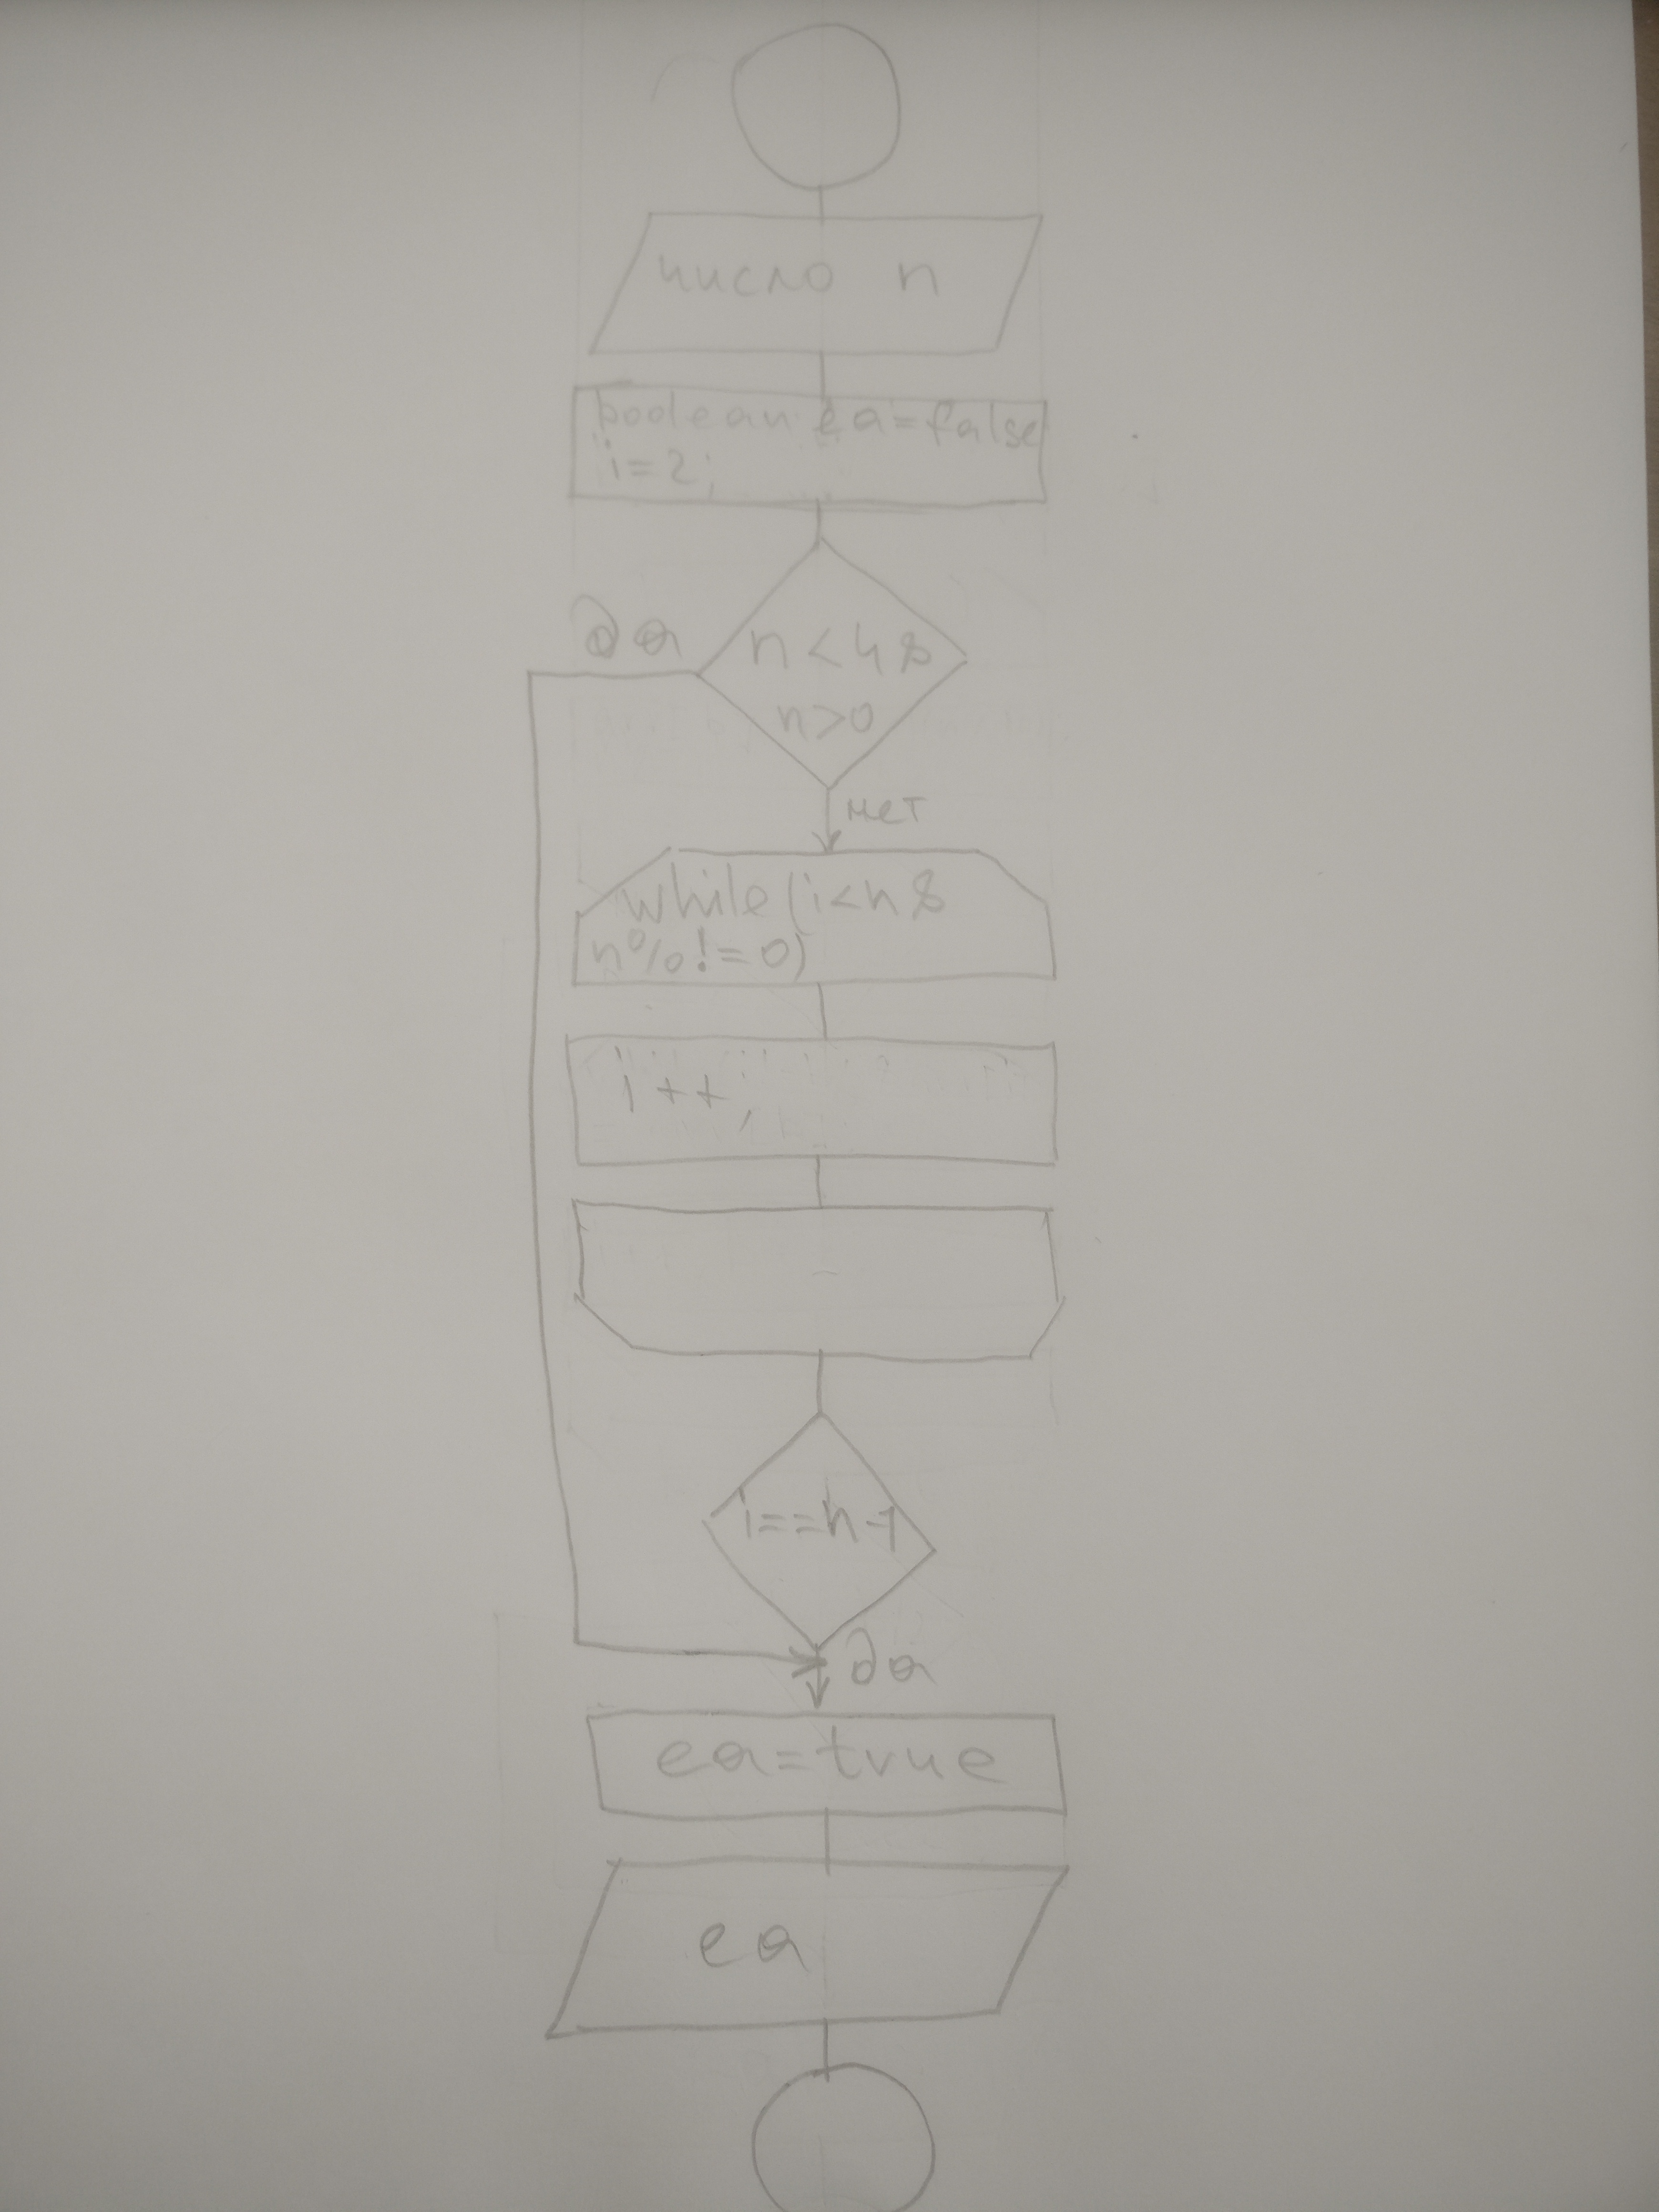 число n
boolean ea=false
i=2;
да
n<4 &
n>0
нет
while (i<n &
n%!=0)
i++;
i==n-1
да
ea=true
ea